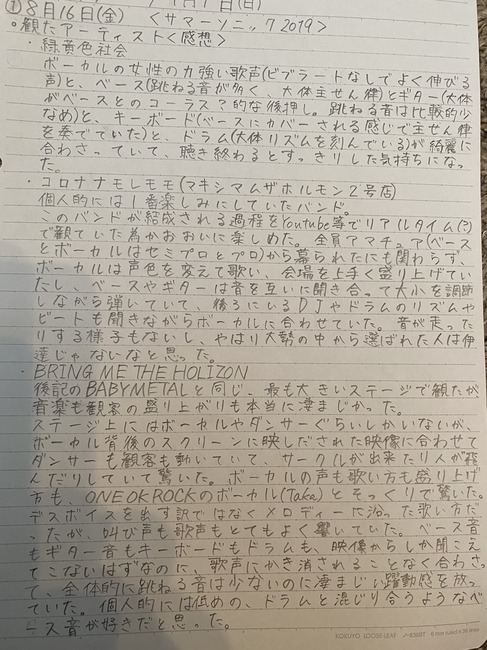 ①8月16日(金) <サマーソニック2019>
・観たアーティスト<感想>
・緑黄色社会
ボーカルの女性の力強い歌声(ビブラートなしでよく伸びる
声)と、ベース(跳ねる音が多く、大体主せん律)とギター(大体
がベースとのコーラス?的な後押し。跳ねる音は比較的少
なめ)と、キーボード(ベースにカバーされる感じで主せん律
を奏でていた)と、ドラム(大体リズムを刻んでいる)が綺麗に
合わさっていて、聴き終わるとすっきりした気持ちになっ
た。
・コロナナモレモモ(マキシマムザホルモン2号店)
個人的には1番楽しみにしていたバンド。
このバンドが結成される過程をYoutube等でリアルタイム(?)
で観ていた為かおおいに楽しめた。全員アマチュア(ベース
とボーカルはセミプロとプロ)から募られたにも関わらず、
ボーカルは声色を変えて歌い、会場を上手く盛り上げてい
たし、ベースやギターは音を互いに聞き合って大小を調節
しながら弾いていて、後ろにいるDJやドラムのリズムや
ビートも聞きながらボーカルに合わせていた。音が走った
りする様子もないし、やはり大勢の中から選ばれた人は伊
達じゃないなと思った。
・BRING ME THE HOLIZON
後記のBABYMETALと同じ、最も大きいステージで観たが
音楽も観客の盛り上がりも本当に凄まじかった。
ステージ上にはボーカルやダンサーぐらいしかいないが、
ボーカル背後のスクリーンに映しだされた映像に合わせて
ダンサーも観客も動いていて、サークルが出来たり人が飛
んだりしていて驚いた。ボーカルの声も歌い方も盛り上げ
方も、ONE OK ROCKのボーカル(Taka)とそっくりで驚いた。
デスボイスを出す訳ではなくメロディーに沿った歌い方だ
ったが、叫び声も歌声もとてもよく響いていた。ベース音
もギター音もキーボードもドラムも、映像からしか聞こえ
てこないはずなのに、歌声にかき消されることなく合わさっ
て、全体的に跳ねる音は少ないのに凄まじい躍動感を放っ
ていた。個人的には低めの、ドラムと混じり合うようなベ
ース音が好きだと思った。